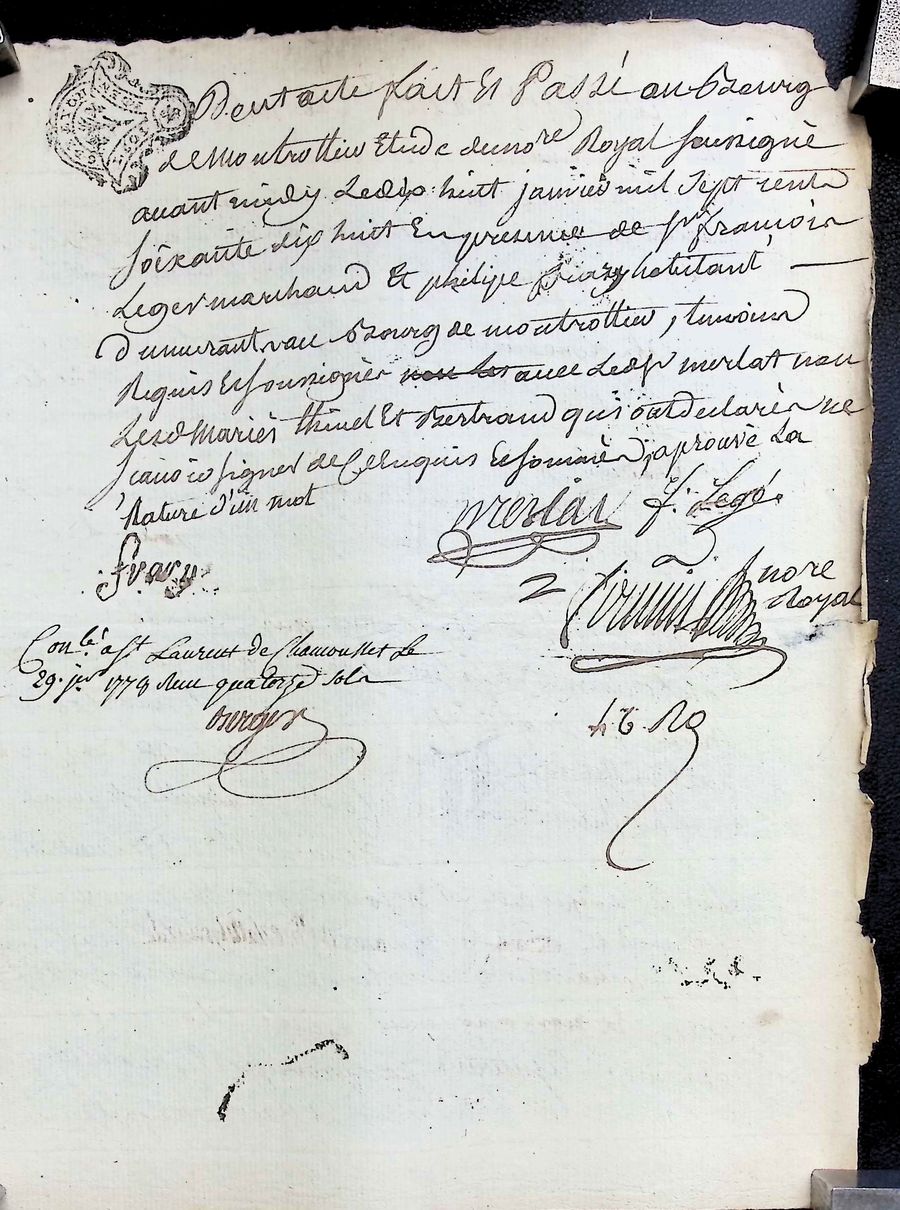 Dont acte fait Et Passé au Bourg
de Montrottier Etude du nore Royal soussigné
avant midy Le dix huit janvier mil Sept cent
soixante dix huit En presence de sr françois
Leger marchand Et philipe frary habitant
demeurant au Bourg de montrottier, temoins
Requis Et soussignés avec Led sr merlat non
Lesd Mariés thinel Et Bertrand qui ont declarés ne
scavoir signer de Ce Enquis Et sommés, aprouvé La
Rature d'un mot
merlat f. Legé
frary
2 nore
Royal
Conlé a St Laurent de Chamousset Le
29 jer 1778 Reçu quatorze sols
Berger